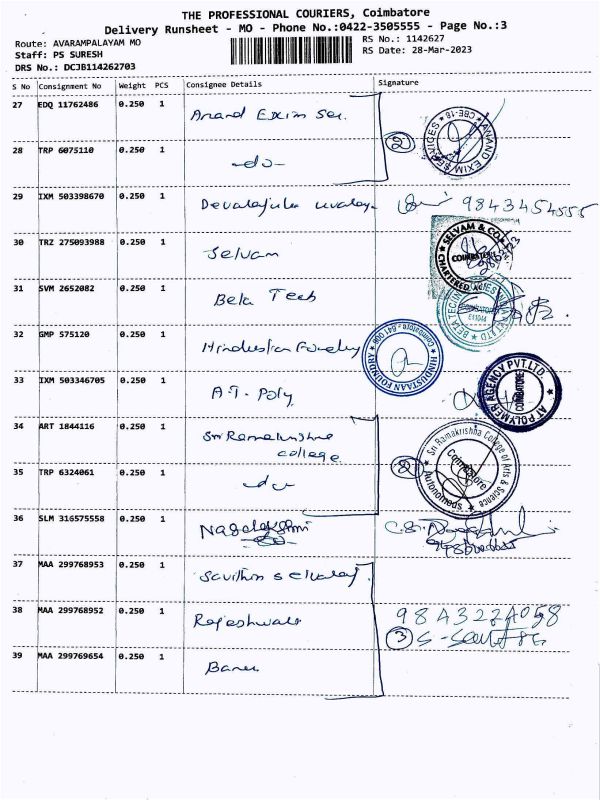 THE PROFESSIONAL COURIERS, Coimbatore
Delivery Runsheet - MO - Phone No.:0422-3505555 - Page No.:3
Route: AVARAMPALAYAM MO
RS No.: 1142627
Staff: PS SURESH
RS Date: 28-Mar-2023
DRS No.: DCJB114262703
S No Consignment No Weight PCS Consignee Details Signature
27 EDQ 11762486 0.250 1 Anand Exim Ser.
2
ANAND EXIM SERVICES * CBE-18 *
28 TRP 6075110 0.250 1 -do-
29 IXM 503398670 0.250 1 9843454555
30 TRZ 275093988 0.250 1 Selvam
SELVAM & CO. CHARTERED COIMBATORE
31 SVM 2652082 0.250 1 Beta Tech
32 GMP 575120 0.250 1 Hindustan Foundry
HINDUSTAAN FOUNDRY * Coimbatore - 641 006 *
33 IXM 503346705 0.250 1 A.T. Poly
AT POLYMER AGENCY PVT.LTD COIMBATORE
34 ART 1844116 0.250 1 Sri Ramakrishna
college
2
Sri Ramakrishna College of Arts & Science
Coimbatore
Autonomous
35 TRP 6324061 0.250 1 -do-
36 SLM 316575558 0.250 1
37 MAA 299768953 0.250 1
38 MAA 299768952 0.250 1 Rajeshwari
3
39 MAA 299769654 0.250 1